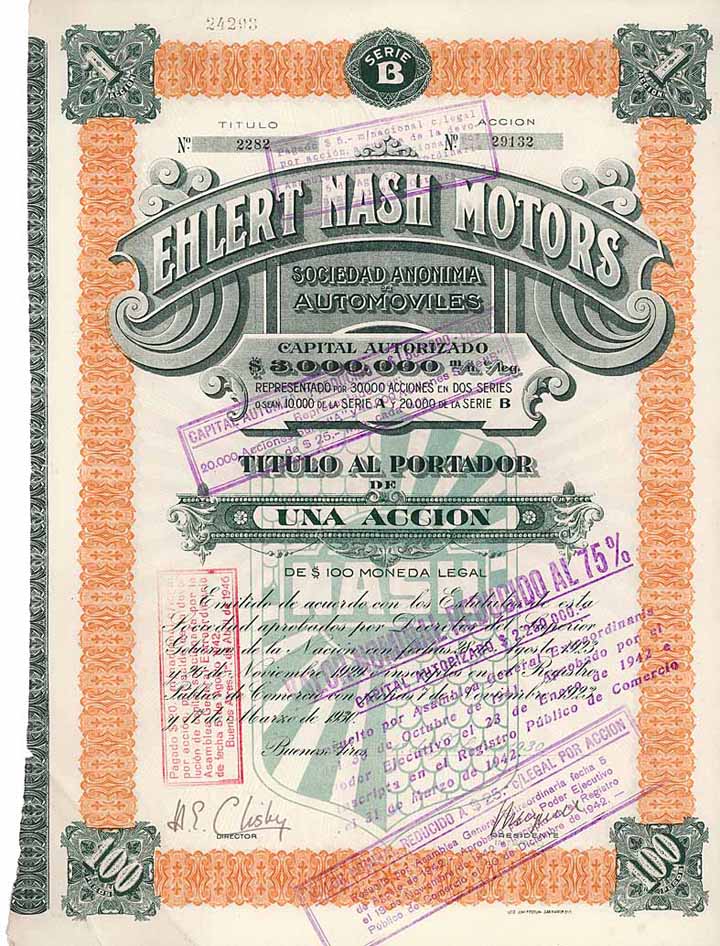 24293
1
SERIE
B
1
TITULO
ACCION
Nº 2282
Nº 29132
Pagado $ 5.- m/nacional c/legal
por acción, a de la devo-
EHLERT NASH MOTORS
SOCIEDAD ANONIMA
DE
AUTOMOVILES
CAPITAL AUTORIZADO
$ 3.000.000 m/n. c/leg.
REPRESENTADO POR 30.000 ACCIONES EN DOS SERIES
O SEAN, 10.000 DE LA SERIE A Y 20.000 DE LA SERIE B
CAPITAL AUTO
20.000 Acciones "A" y
de $ 25.-
TITULO AL PORTADOR
DE
UNA ACCION
DE $ 100 MONEDA LEGAL
NASH
Emitido de acuerdo con los Estatutos de esta
Sociedad aprobados por Decretos del Superior
Gobierno de la Nación con fechas de Agosto 1923
y de Noviembre 1929 e inscriptos en el Registro
Público de Comercio con fechas de Noviembre 1923
y 17 de Marzo de 1930.
Buenos Aires, 1930
REDUCIDO AL 75%
CAPITAL AUTORIZADO $ 2.250.000.-
suelto por Asamblea General Extraordinaria
de 30 de Octubre de Aprobado por el
Poder Ejecutivo el 23 de Enero de 1942 e
inscripta en el Registro Público de Comercio
el 31 de Marzo de 1942.
Pagado $
por acción,
lución de capital por la
Asamblea General Extraordinaria
de fecha 5 de Agosto 1942.
Buenos Aires, 1º de Abril de 1946
REDUCIDO A $ 25.- C/LEGAL POR ACCION
Asamblea General Extraordinaria fecha 5
de de 1942. Aprobado Poder Ejecutivo
el 19 de Noviembre de Registro
Público de Comercio el 30 de Diciembre de 1942.-
H E Clisby
DIRECTOR
PRESIDENTE
100
100